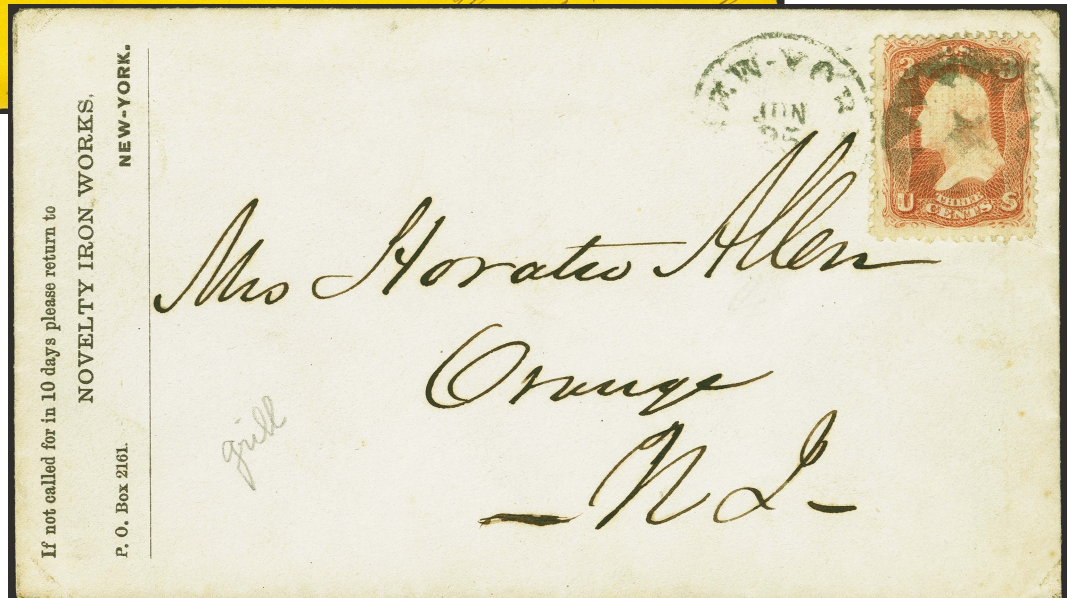 If not called for in 10 days please return to
NOVELTY IRON WORKS,
P. O. Box 2161. NEW-YORK.
NEW-YOR
JUN
25
3 U.S. 3
U THREE S
CENTS
Mrs Horatio Allen
Orange
N J
grill